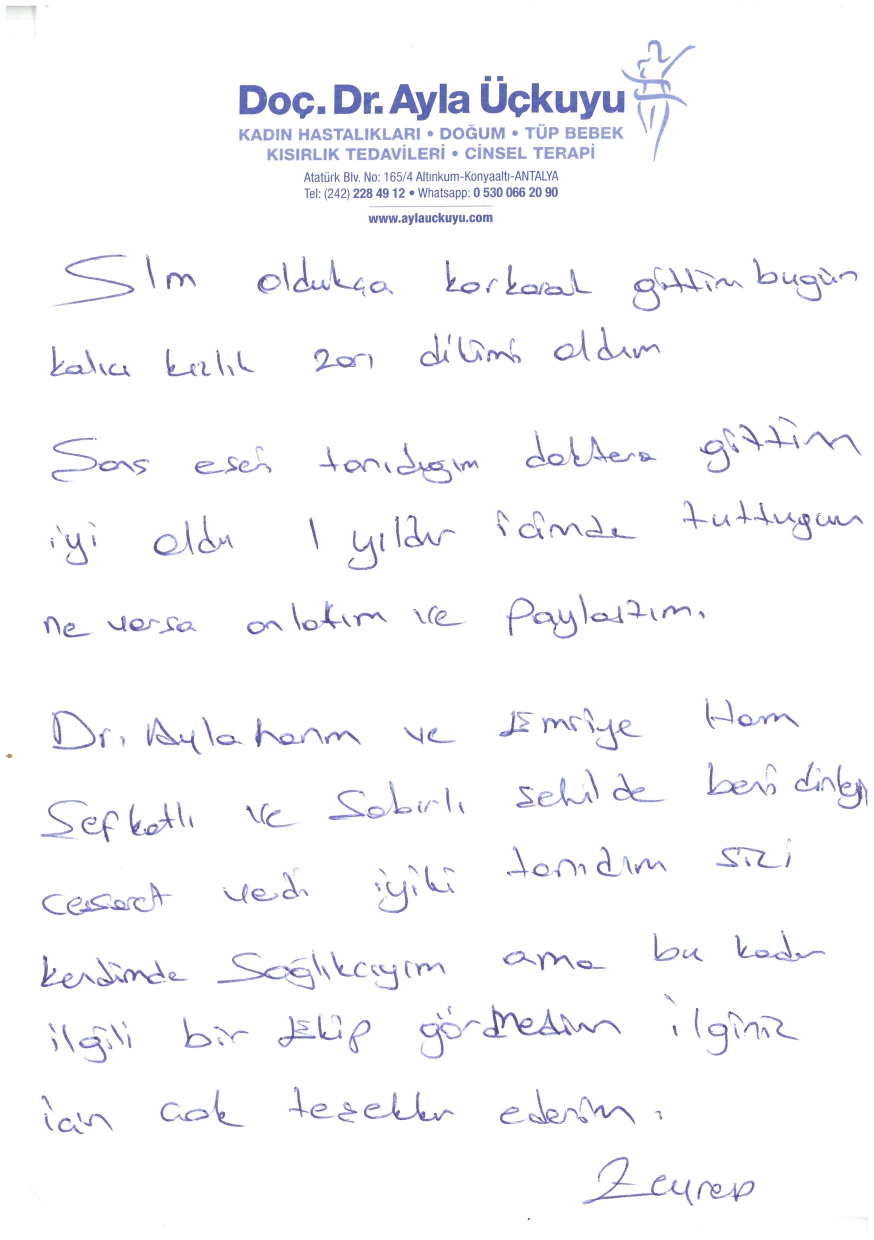 Doç. Dr. Ayla Üçkuyu
KADIN HASTALIKLARI • DOĞUM • TÜP BEBEK
KISIRLIK TEDAVİLERİ • CİNSEL TERAPİ
Atatürk Blv. No: 165/4 Altınkum-Konyaaltı-ANTALYA
Tel: (242) 228 49 12 • Whatsapp: 0 530 066 20 90
www.aylauckuyu.com
Slm oldukça korkarak gittim bugün
kalıcı kızlık zarı dikimi oldum
Sans eseri tanıdıgım doktora gittim
iyi oldu 1 yıldır icimde tuttugum
ne varsa anlatım ve Paylastım.
Dr. Ayla hanım ve Emriye Hanm
Sefkatlı ve Sabırlı sekilde beni dinleyi
cesaret verdi iyiki tanıdım sizi
kendimde Sağlıkcıyım ama bu kadar
ilgili bir Ekip görmedim ilginiz
icin cok tesekkr ederim.
Zeynep